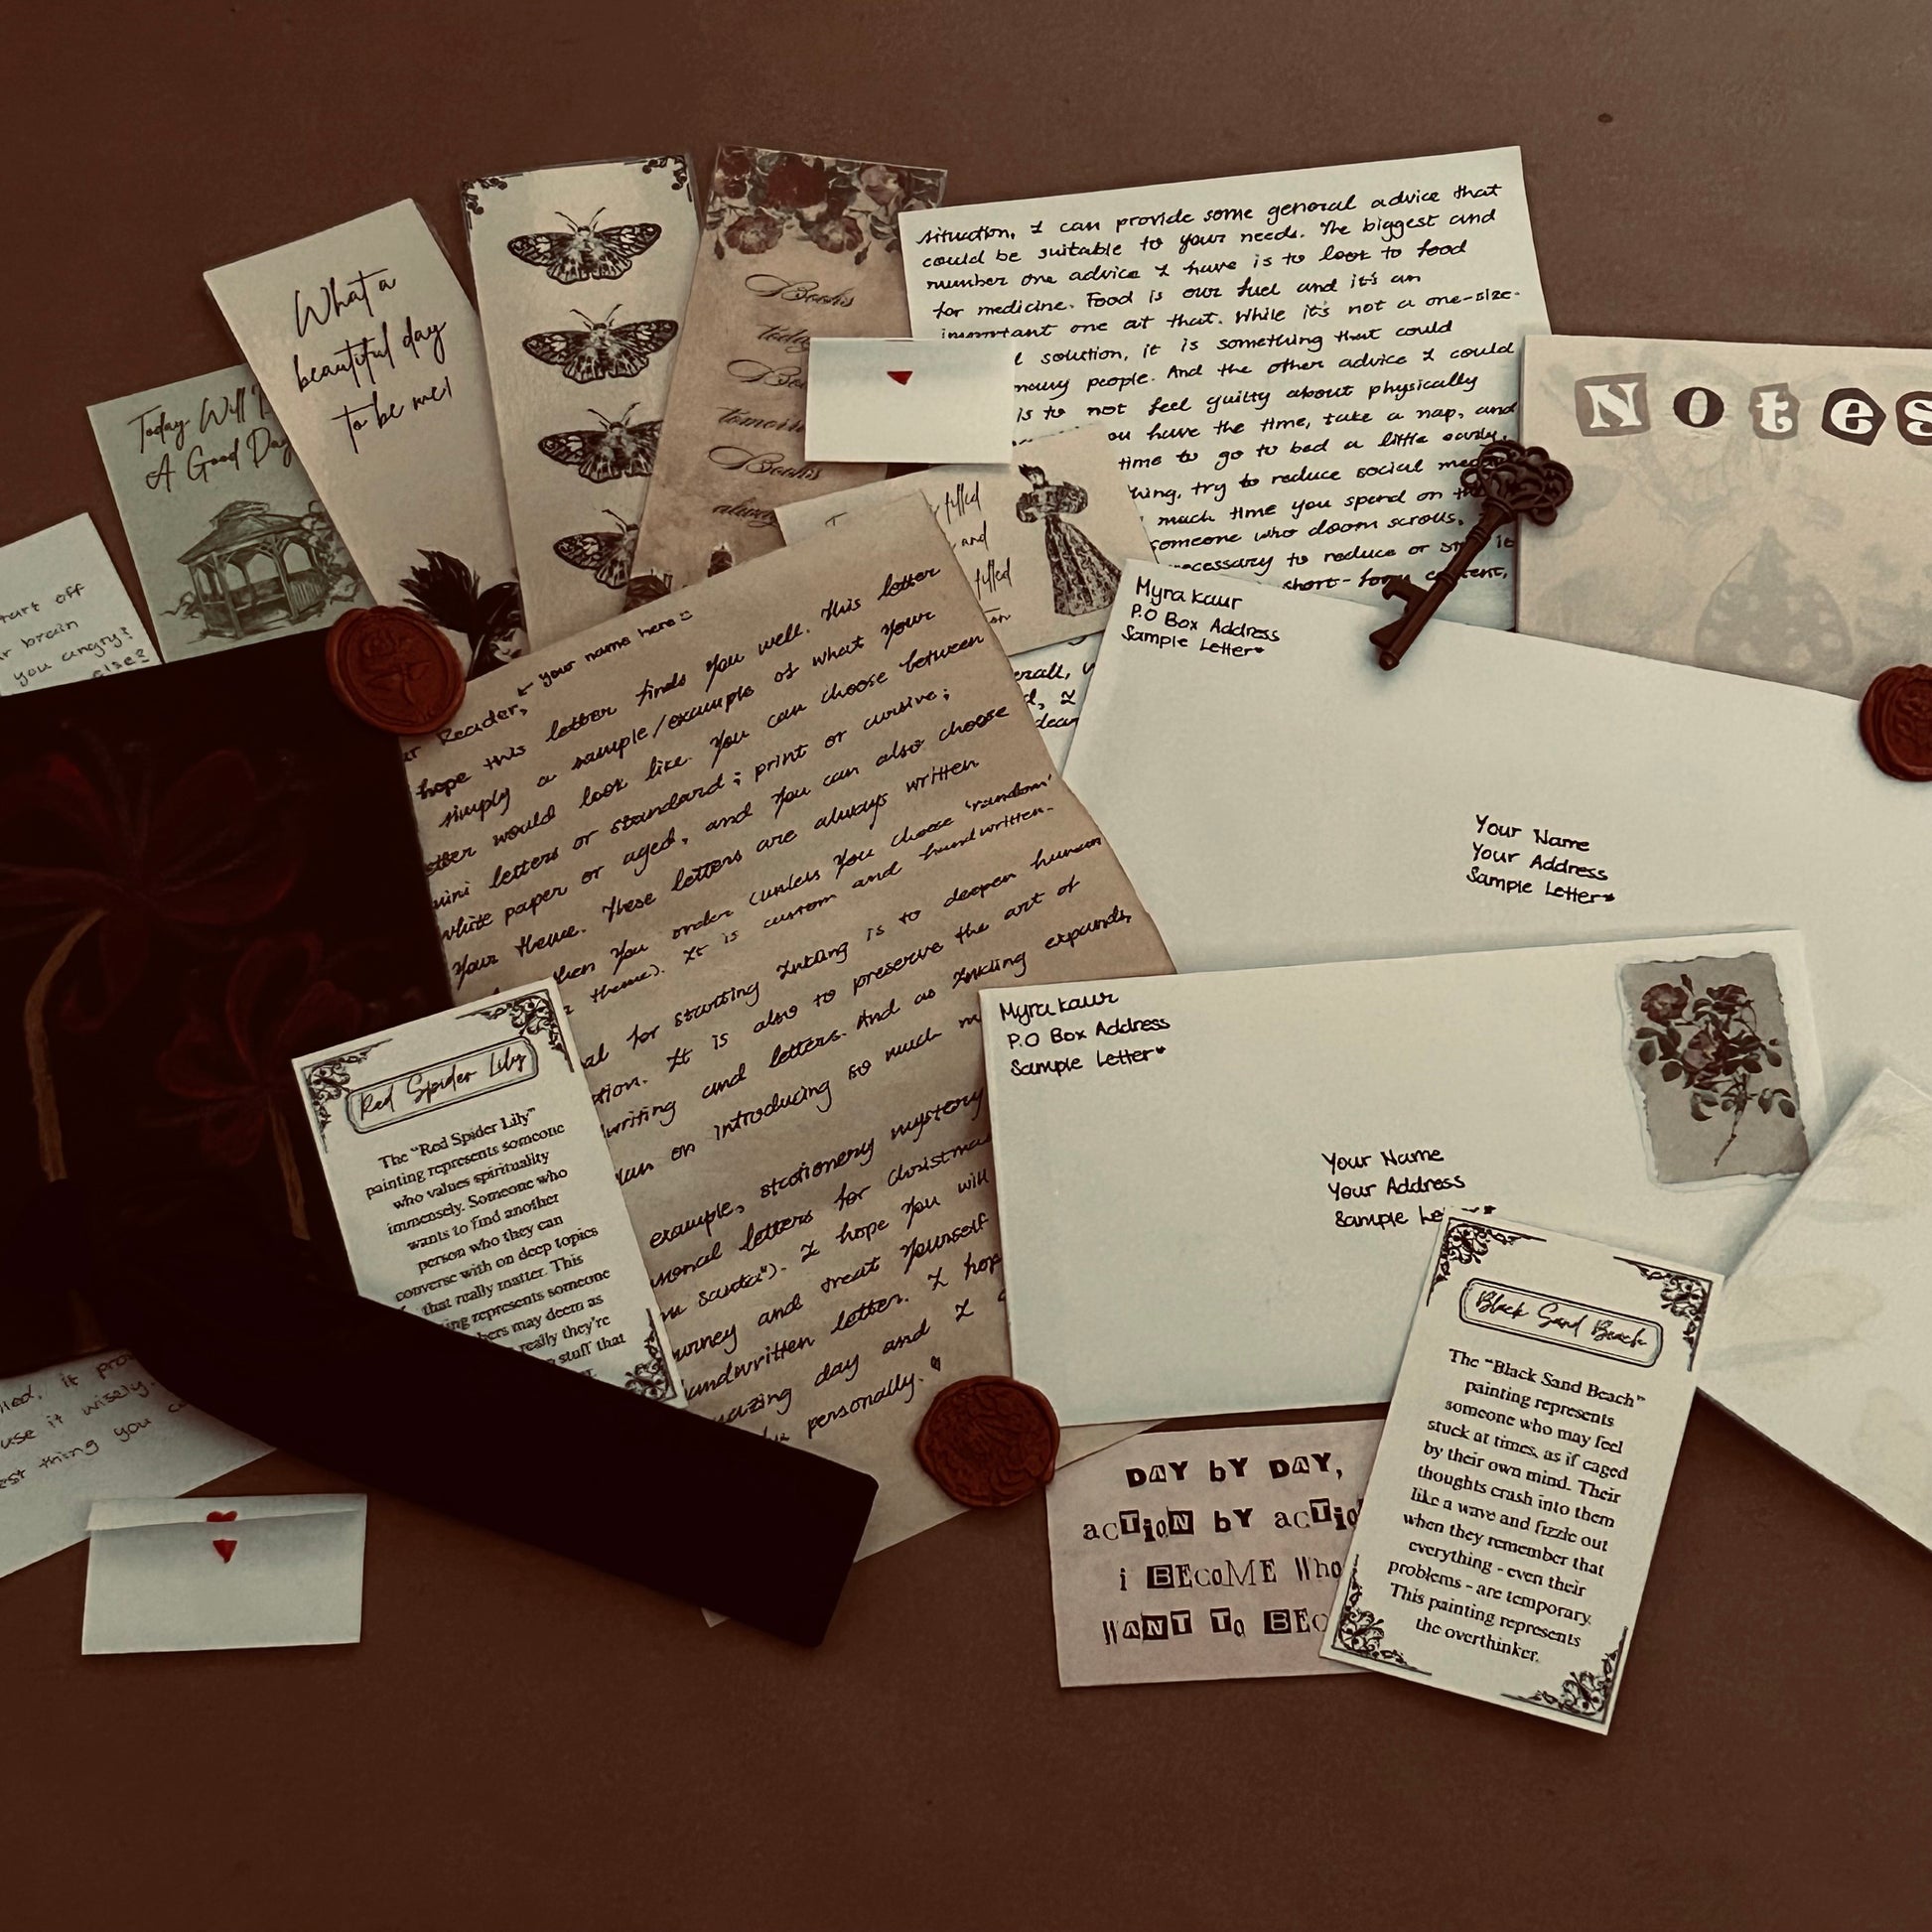 Today Will
A Good Day
What a
beautiful day
to be me!
Books
Books
always
situation, I can provide some general advice that
could be suitable to your needs. The biggest and
number one advice I have is to look to food
for medicine. Food is our fuel and it's an
important one at that. While it's not a one-size-
solution, it is something that could
many people. And the other advice I could
is to not feel guilty about physically
have the time, take a nap, and
time to go to bed a little early.
try to reduce social
much time you spend on
someone who doom scrolls,
to reduce or
short-form content,
Notes
filled
and
filled
start off
brain
you angry?
else?
← your name here
Reader,
hope this letter finds you well. This letter
simply a sample/example of what your
would look like. You can choose between
letters or standard; print or cursive;
white paper or aged, and you can also choose
your theme. These letters are always written
when you order (unless you choose 'random'
theme). It is custom and handwritten.
for starting Inkling is to deepen human
It is also to preserve the art of
writing and letters. And as Inkling expands,
on introducing so much
example, stationery mystery
letters for Christmas
santa"). I hope you will
and treat yourself
handwritten letter. I hope
day and I
personally.
Myra Kaur
P.O Box Address
Sample Letter*
Your Name
Your Address
Sample Letter*
Myra Kaur
P.O Box Address
Sample Letter*
Your Name
Your Address
Sample
Red Spider Lily
The "Red Spider Lily"
painting represents someone
who values spirituality
immensely. Someone who
wants to find another
person who they can
converse with on deep topics
that really matter. This
represents someone
may deem as
really they're
stuff that
it
use it wisely.
thing you
DAY bY DAY,
acTioN bY
i BEcoME Who
WANT To
Black Sand Beach
The "Black Sand Beach"
painting represents
someone who may feel
stuck at times, as if caged
by their own mind. Their
thoughts crash into them
like a wave and fizzle out
when they remember that
everything - even their
problems - are temporary.
This painting represents
the overthinker.